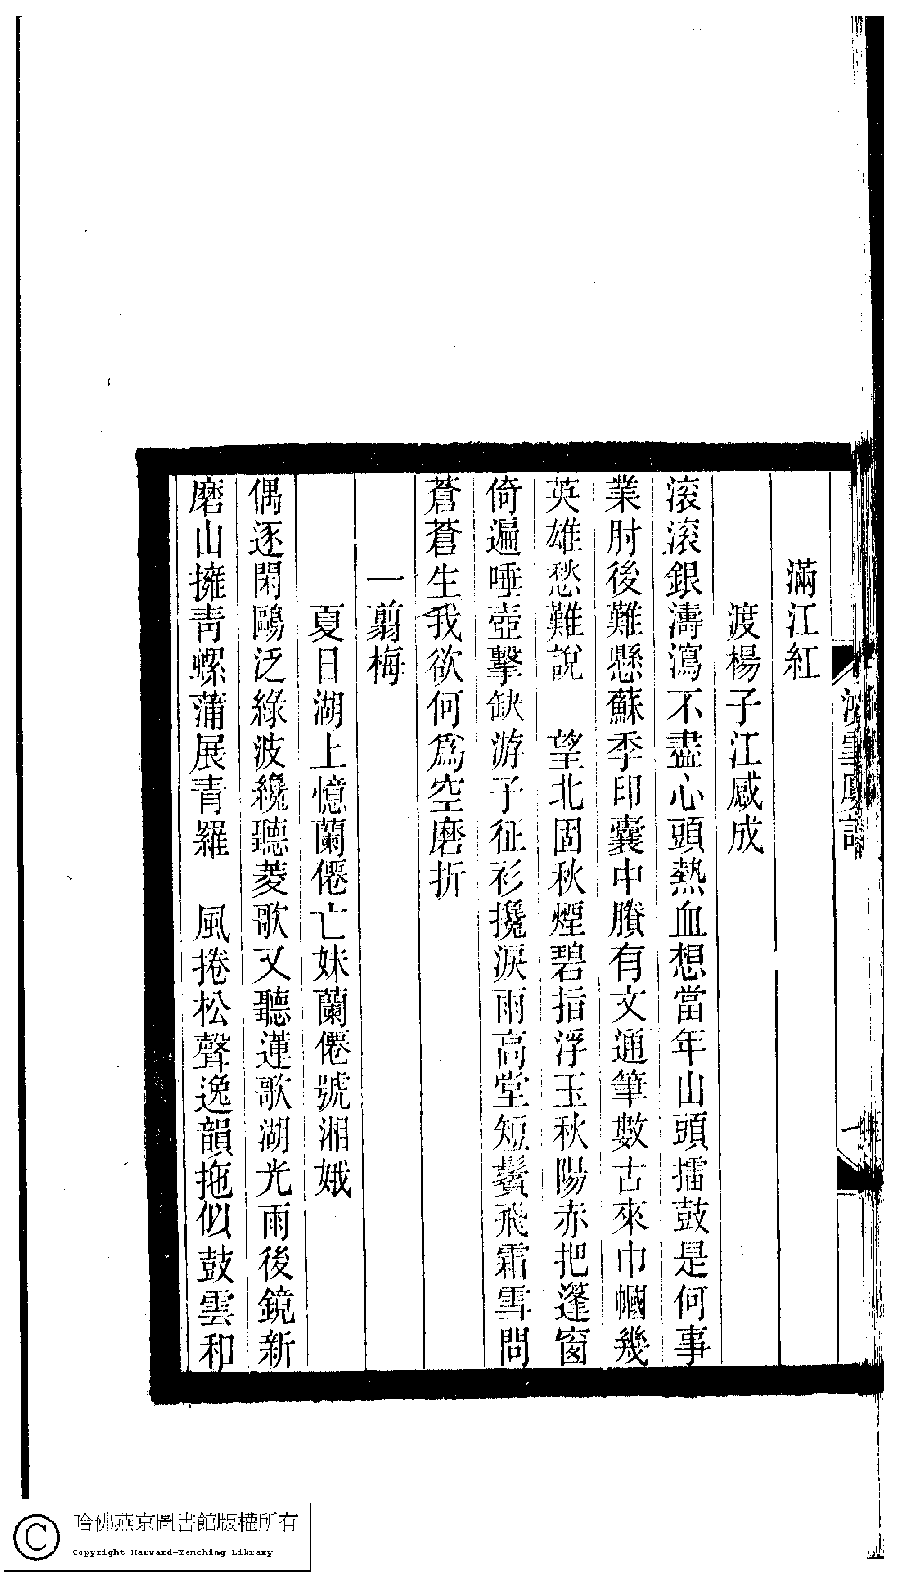 滿江紅
渡楊子江感成
滚滚銀濤瀉不盡心頭熱血想當年山頭擂鼓是何事
業肘後難懸蘇季印囊中賸有文通筆數古來巾幗幾
英雄愁難說　望北固秋煙碧指浮玉秋陽赤把蓬窗
倚遍唾壺擊缺游子征衫攙淚雨高堂短鬢飛霜雪問
蒼蒼生我欲何爲空磨折
一翦梅
夏日湖上憶蘭僊亡妹蘭僊號湘娥
偶逐閑鷗泛綠波纔聽菱歌又聽蓮歌湖光雨後鏡新
磨山擁靑螺蒲展青羅　風捲松聲逸韻拖似鼓雲和
哈佛燕京圖書館版權所有
Copyright Harvard-Yenching Library